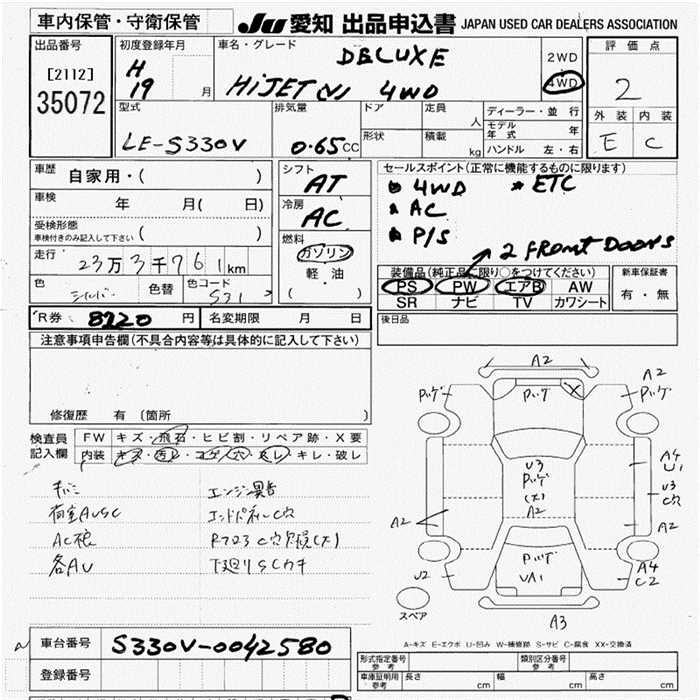 車内保管・守衛保管
JU 愛知 出品申込書 JAPAN USED CAR DEALERS ASSOCIATION
出品番号
[2112]
35072
初度登録年月
H
19 月
車名・グレード
DELUXE
HIJET (V) 4WD
2WD
4WD
評価点
2
外装 内装
E C
型式
LE-S330V
排気量
0.65 CC
ドア
形状
定員
人
積載
kg
ディーラー・並行
モデル年式 年
ハンドル 左・右
車歴 自家用・( )
車検 年 月( 日)
受検形態
車検付きのみ記入して下さい ( )
走行 23万3千761km
色 シルバー 色替 色コード S31
シフト
AT
冷房
AC
燃料
ガソリン
軽・油
( )
セールスポイント(正常に機能するものに限ります)
4WD ETC
AC
P/S
2 FRONT DOORS
装備品(純正品に限り○をつけてください)
PS PW エアB AW
SR ナビ TV カワシート
新車保証書
有・無
後日品
R券 8720 円 名変期限 月 日
注意事項申告欄(不具合内容等は具体的に記入して下さい)
修復歴 有 (箇所 )
検査員記入欄
FW キズ・飛石・ヒビ割・リペア跡・X要
内装 キズ・汚レ・コゲ穴・スレ・キレ・破レ
エンジン異音
荷室AUSC エンドパネルC穴
各AU 下廻りSCカキ
A2
A2
ハゲ
ハゲ
ハゲ
X
U3
ハゲ
(大)
A2
A4
U1
U3
C穴
A2
A2
ハゲ
UA1
U2
A4
C2
A3
スペア
A-キズ E-エクボ U-凹み W-補修跡 S-サビ C-腐食 XX-交換済
車台番号 S330V-0042580
登録番号
形式指定番号 参考
類別区分番号 参考
車庫証明用 参考 長さ cm 幅 cm 高さ cm